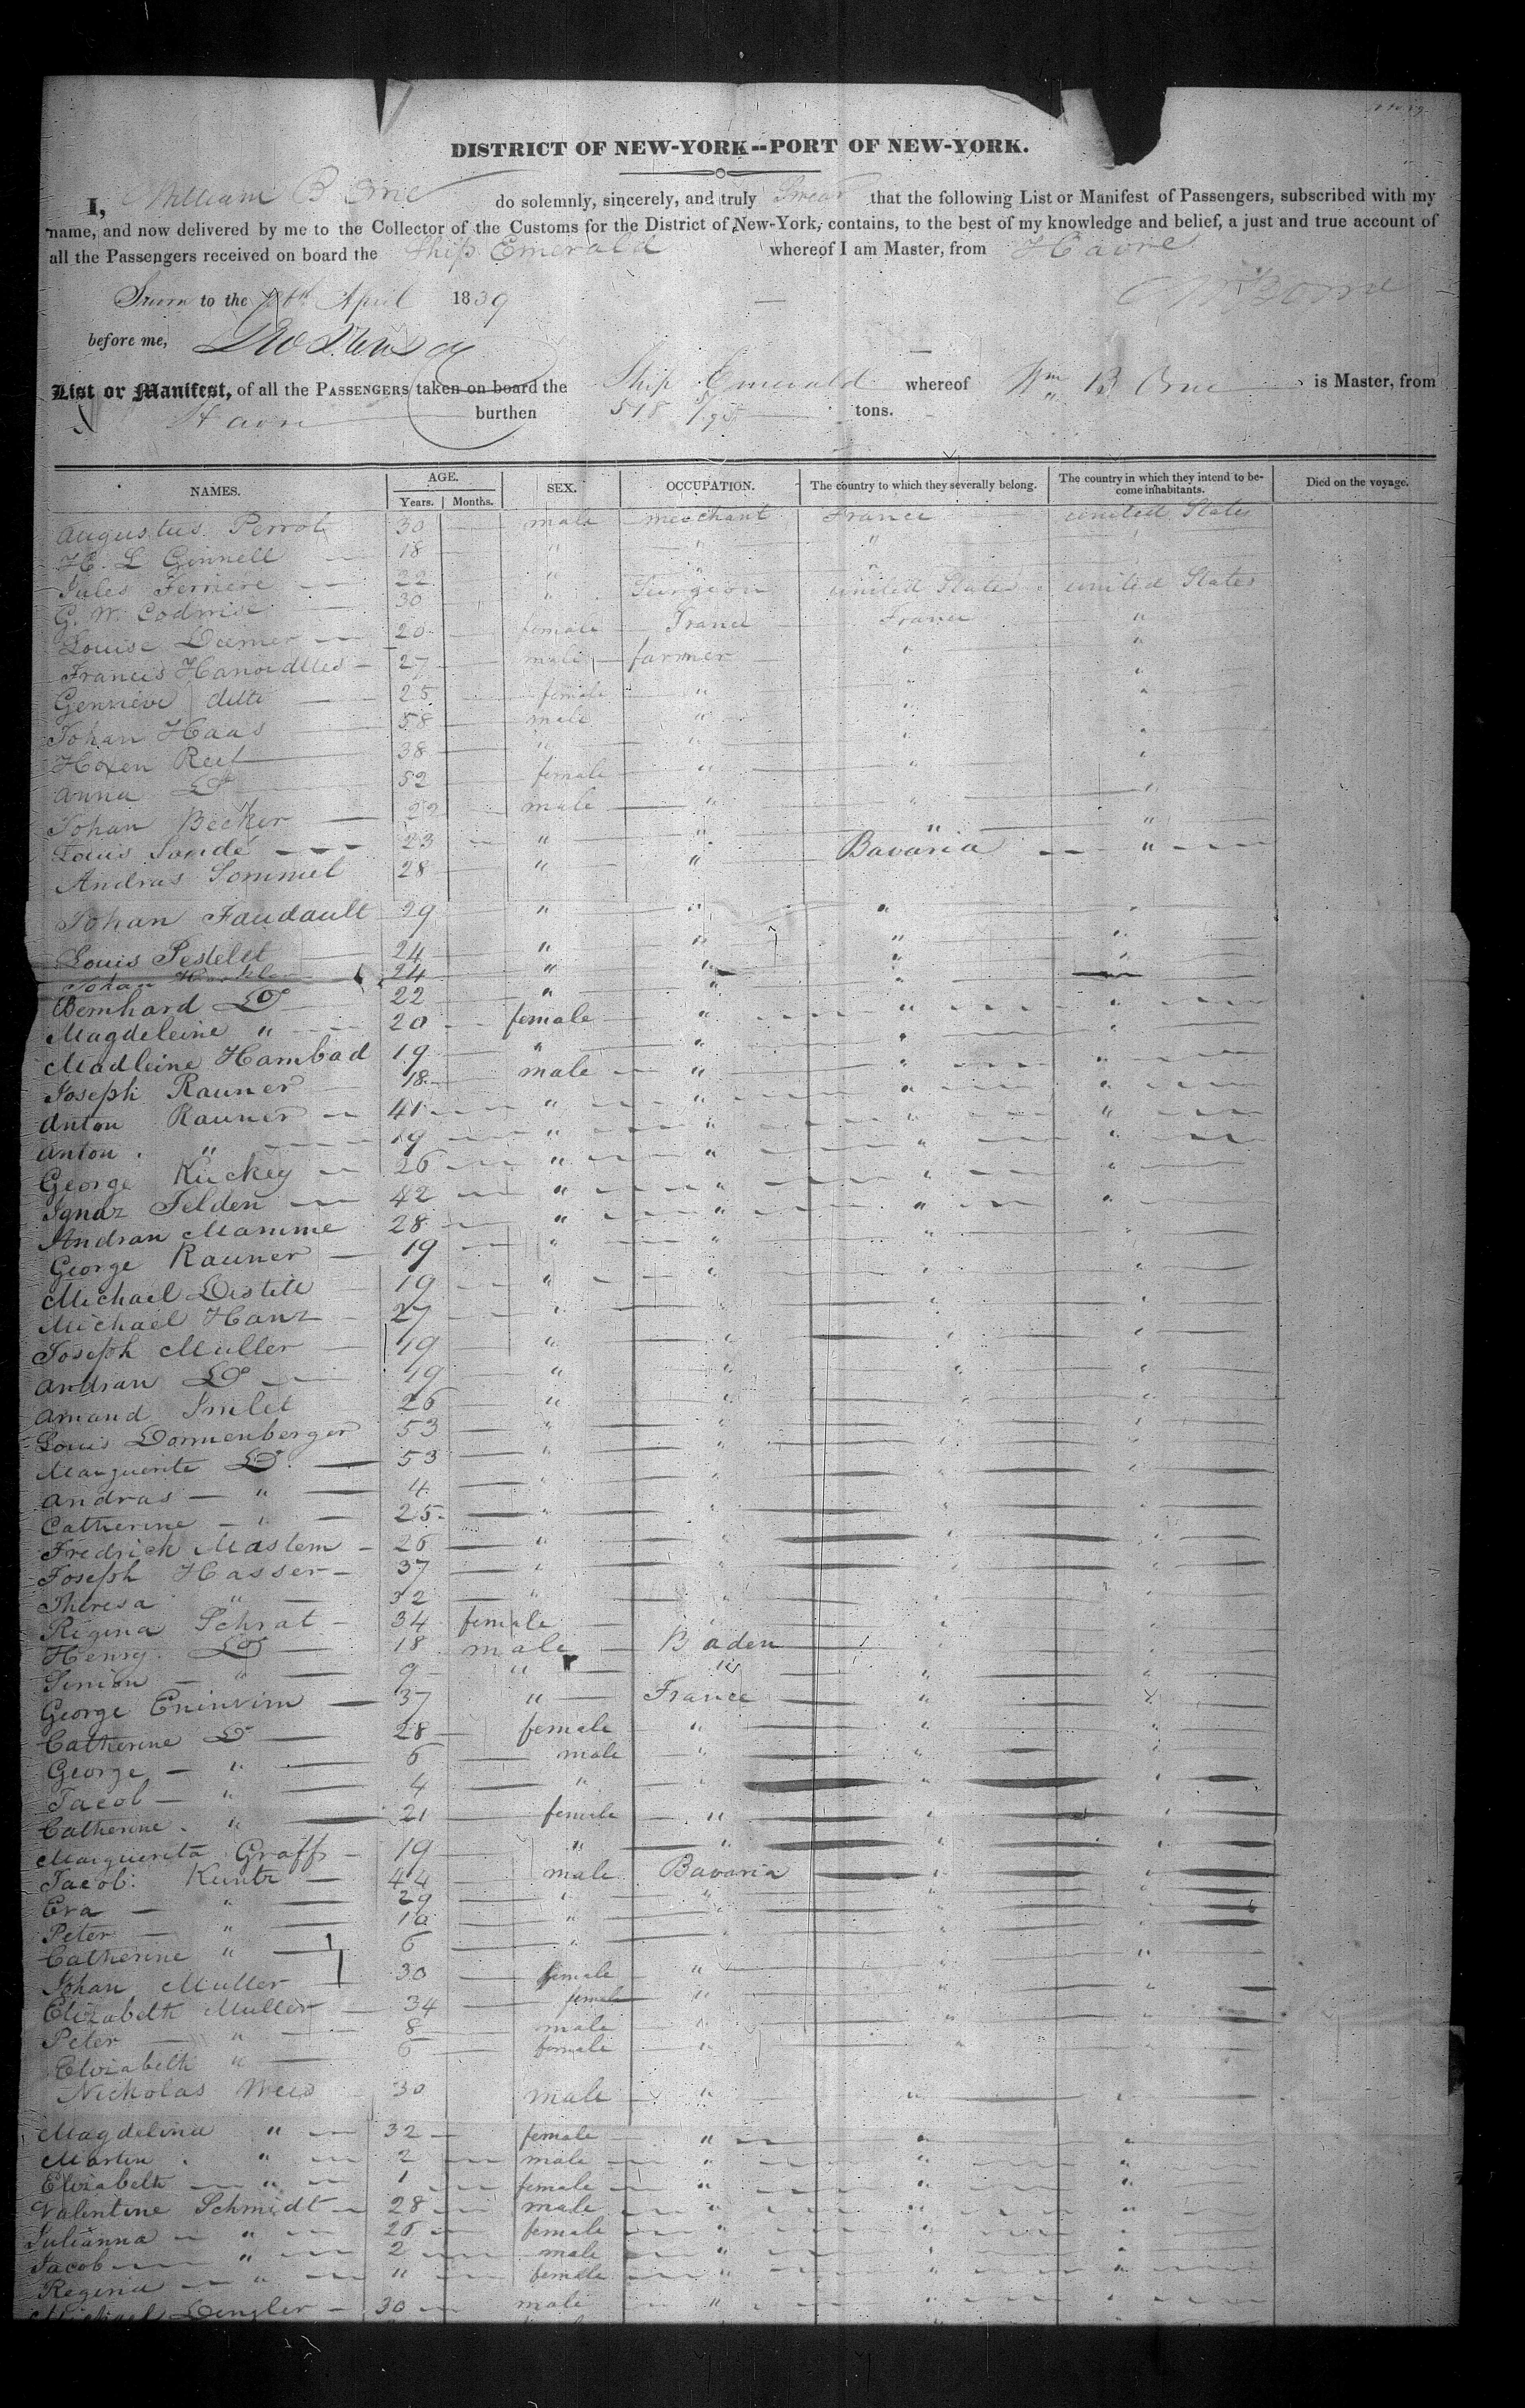 DISTRICT OF NEW-YORK--PORT OF NEW-YORK.
I, William B Orne do solemnly, sincerely, and truly Swear that the following List or Manifest of Passengers, subscribed with my
name, and now delivered by me to the Collector of the Customs for the District of New-York, contains, to the best of my knowledge and belief, a just and true account of
all the Passengers received on board the Ship Emerald whereof I am Master, from Havre
Sworn to the April 1839
before me,
List or Manifest, of all the PASSENGERS taken on board the Ship Emerald whereof Wm B Orne is Master, from
Havre burthen 518 tons.
NAMES. AGE. Years. Months. SEX. OCCUPATION. The country to which they severally belong. The country in which they intend to become inhabitants. Died on the voyage.
Augustus Perrot 30 male merchant France united States
H. L Ginnell 18 " " "
Jules Ferriere 22 " " "
G. W. Codwise 30 " Surgeon united States united States
Louise Deemer 20 female France France "
Francis 27 male farmer " "
Genevieve ditto 25 female " " "
Johan Haas 58 male " " "
Hoxen Reef 38 " " " "
Anna Do 52 female " " "
Johan Becker 22 male " " "
Louis Soudé 23 " " " "
Andras Sommel 28 " " Bavaria "
Johan Faudault 29 " " " "
Louis Pestelet 24 " " " "
Johan 24 " " "
Bernhard Do 22 " " "
Magdeleine " 20 female " " "
Madleine Hambad 19 " " " "
Joseph Rauner 18 male " " "
Anton Rauner 41 " " " "
Anton " 19 " " " "
George Kuckey 26 " " " "
Ignaz Felden 42 " " " "
Andran Mamme 28 " " " "
George Rauner 19 " " "
Michael Distell 19 " " " "
Michael Hanz 27 " " "
Joseph Muller 19 " " " "
Andran Do 19 " " " "
Amand Imlet 26 " " " "
Louis Donnenberger 53 " " " "
Marguerite Do 53 " " " "
Andras " 4 " " "
Catherine " 25 " " "
Fredrich Mastem 26 " " " "
Joseph Hasser 37 " " "
Theresa " 32 " " "
Regina Schrat 34 female " " "
Henry Do 18 male Baden " "
Simion " 9 " " " "
George Eninvim 37 " France "
Catherine Do 28 female " "
George " 6 male " " "
Jacob " 4 " " " "
Catherine " 21 female " " "
Marguerita Graff 19 " " " "
Jacob Kuntz 44 male Bavaria " "
Eva " 29 " " "
Peter " 10 "
Catherine " 6 "
Johan Muller 30 female " "
Elizabeth Muller 34 female " " "
Peter " 8 male " "
Elizabeth " 6 female " "
Nicholas Weis 30 male " " "
Magdelina " 32 female " " "
Martin " 2 male " " "
Elizabeth " 1 female " " "
Valentine Schmidt 28 male " " "
Julianna " 26 female " " "
Jacob " 2 male " " "
Regina " " female " " "
Michael Dengler 30 male " " "